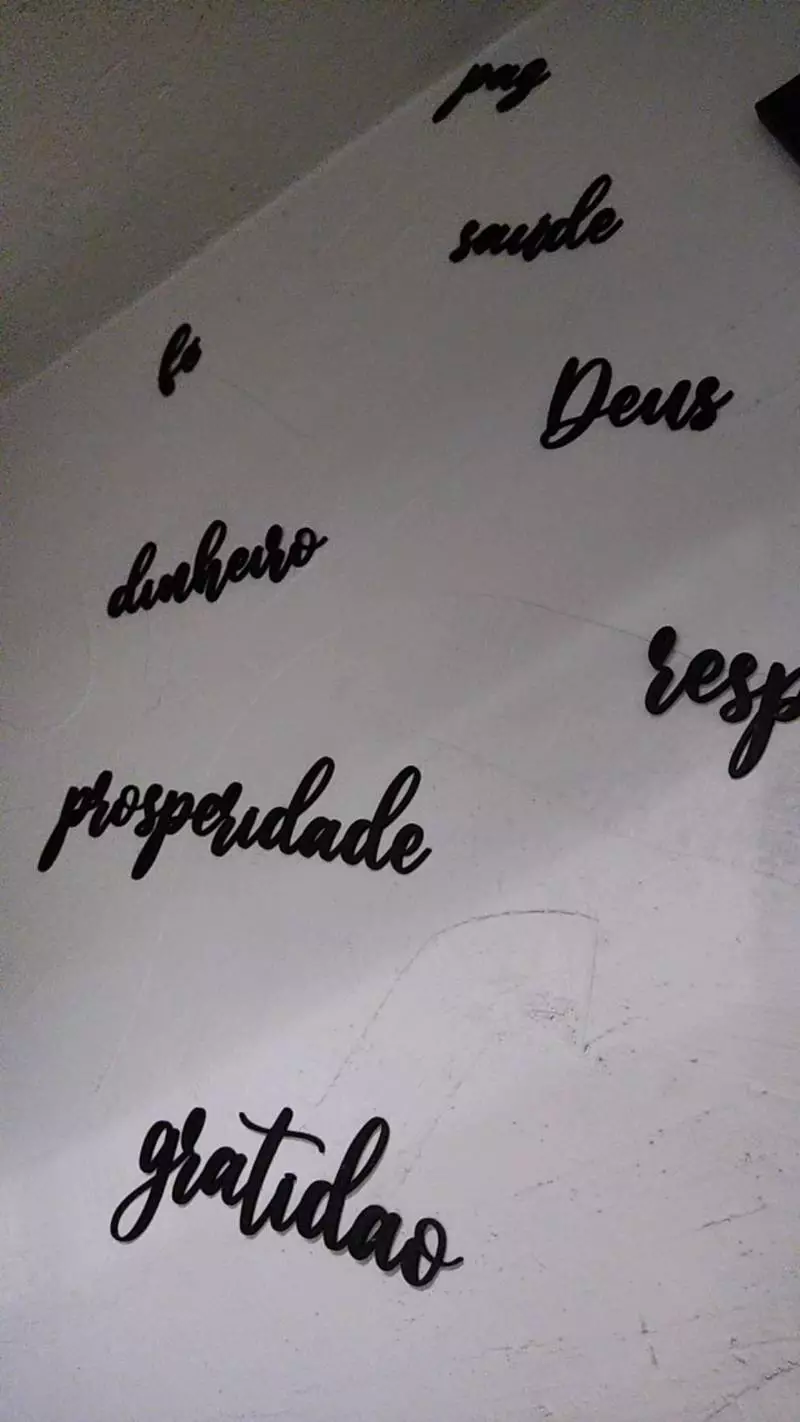 paz
saude
fé
Deus
dinheiro
resp
prosperidade
gratidao